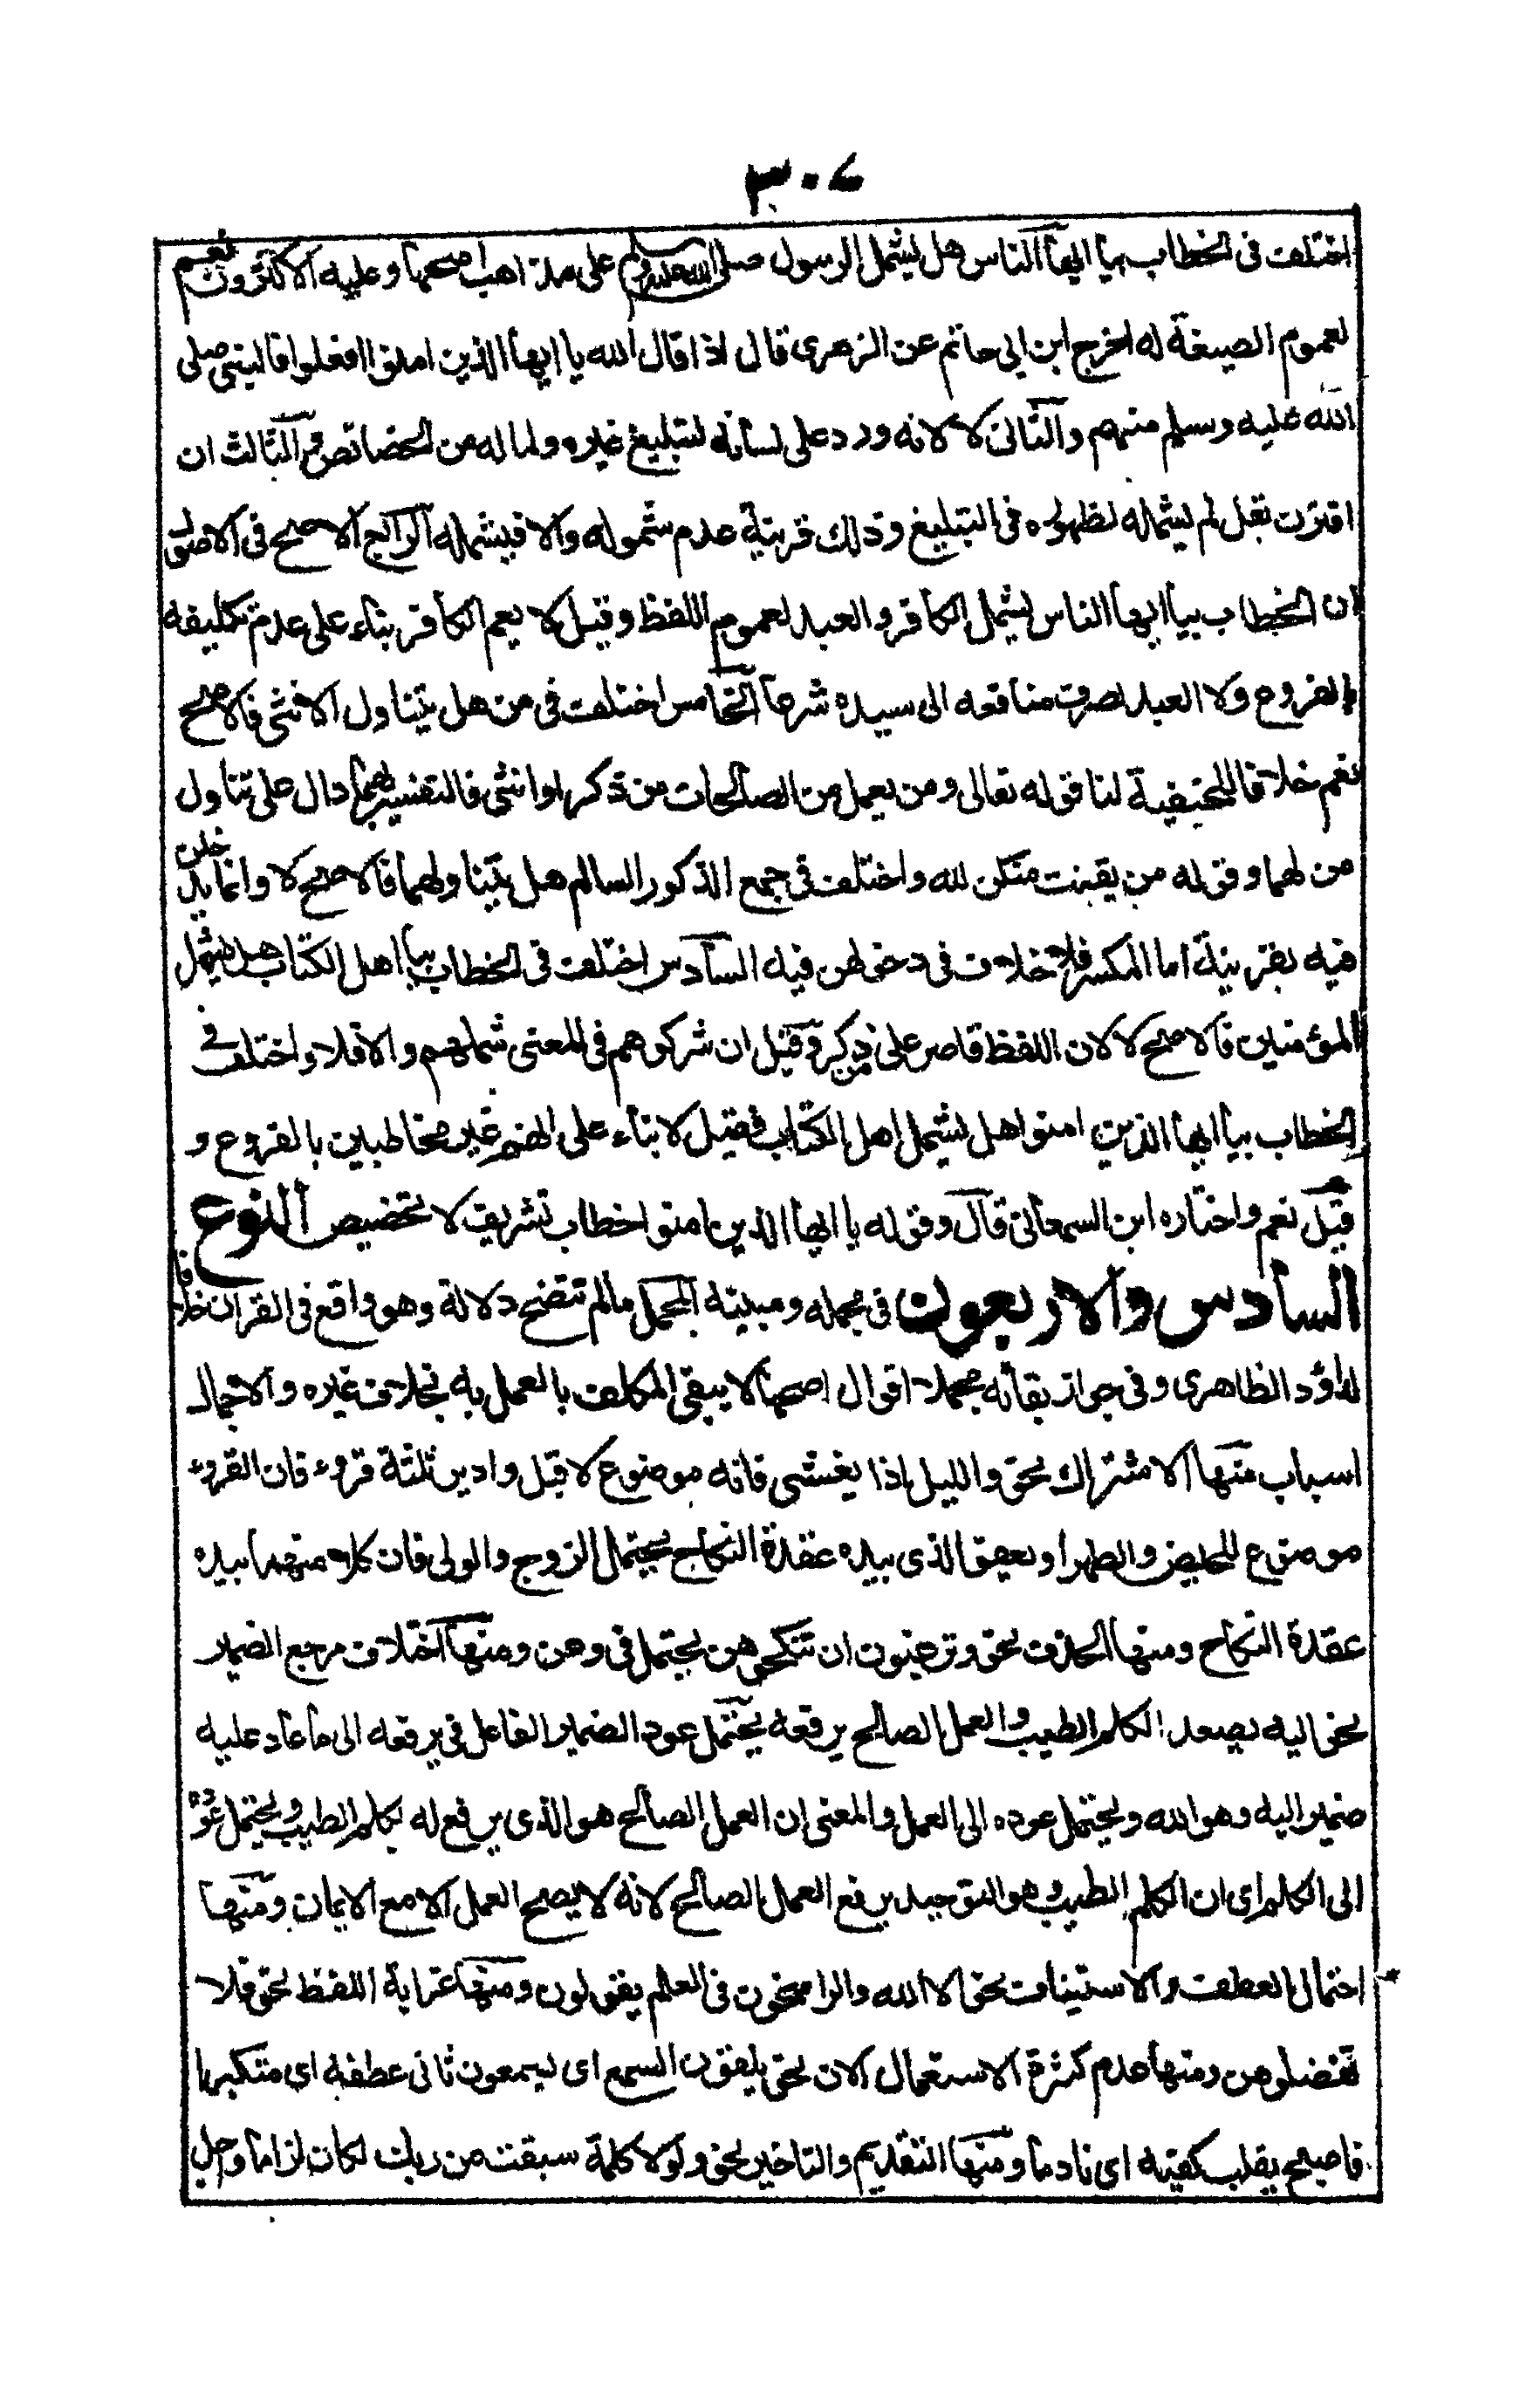 ٣٠٧
اختلف فى الخطاب بيا ايها الناس هل يشمل الرسول صلى الله عليه وسلم على مذاهب اصحها وعليه الاكثرون نعم
لعموم الصيغة له اخرج ابن ابى حاتم عن الزهرى قال اذا قال الله يا ايها الذين امنوا افعلوا فالنبى صلى
الله عليه وسلم منهم والثانى لا لانه ورد على لسانه لتبليغ غيره ولما له من الخصائص والثالث ان
اقترن بقل لم يشمله لظهوره فى التبليغ وذلك قرينة عدم شموله والا فيشمله الرابع الاصح فى الاصول
ان الخطاب بيا ايها الناس يشمل الكافر والعبد لعموم اللفظ وقيل لا يعم الكافر بناء على عدم تكليفه
بالفروع ولا العبد لصرف منافعه الى سيده شرعا الخامس اختلف فى من هل يتناول الانثى فالاصح
نعم خلافا للحنفية لنا قوله تعالى ومن يعمل من الصالحات من ذكر او انثى فالتفسير بهما دال على تناول
من لهما وقوله من يقنت منكن لله واختلف فى جمع الذكور السالم هل يتناولهما فالاصح لا وانما يدخلن
فيه بقرينة اما المكسر فلا خلاف فى دخولهن فيه السادس اختلف فى الخطاب بيا اهل الكتاب هل يشمل
المؤمنين فالاصح لا لان اللفظ قاصر على من ذكر وقيل ان شركوهم فى المعنى شملهم والا فلا واختلف فى
الخطاب بيا ايها الذين امنوا هل يشمل اهل الكتاب فقيل لا بناء على انهم غير مخاطبين بالفروع و
قيل نعم واختاره ابن السمعانى قال وقوله يا ايها الذين امنوا خطاب تشريف لا تخصيص النوع
السادس والاربعون فى مجمله ومبينه المجمل مالم تتضح دلالة وهو واقع فى القران خلافا
لداؤد الظاهرى وفى جواز بقائه مجملا اقوال اصحها لا يبقى المكلف بالعمل به بخلاف غيره والاجمال
اسباب منها الاشتراك نحو والليل اذا يغشى فانه موضوع لاقبل وادبر ثلثة قروء فان القروء
موضوع للحيض والطهر او يعفوا الذى بيده عقدة النكاح يحتمل الزوج والولى فان كلا منهما بيده
عقدة النكاح ومنها الحذف نحو وترغبون ان تنكحوهن يحتمل فى وعن ومنها اختلاف مرجع الضمير
نحو اليه يصعد الكلم الطيب والعمل الصالح يرفعه يحتمل عود الضمير الفاعل فى يرفعه الى ما عاد عليه
ضمير اليه وهو الله ويحتمل عوده الى العمل والمعنى ان العمل الصالح هو الذى يرفع له لكلم الطيب ويحتمل عوده
الى الكلم اى ان الكلم الطيب وهو التوحيد يرفع العمل الصالح لانه لا يصح العمل الا مع الايمان ومنها
احتمال العطف والاستيناف نحو الا الله والراسخون فى العلم يقولون ومنها غرابة اللفظ نحو فلا
تعضلوهن ومنها عدم كثرة الاستعمال الان نحو يلقون السمع اى يسمعون ثانى عطفه اى متكبرا
فاصبح يقلب كفيه اى نادما ومنها التقديم والتاخير نحو ولولا كلمة سبقت من ربك لكان لزاما واجل